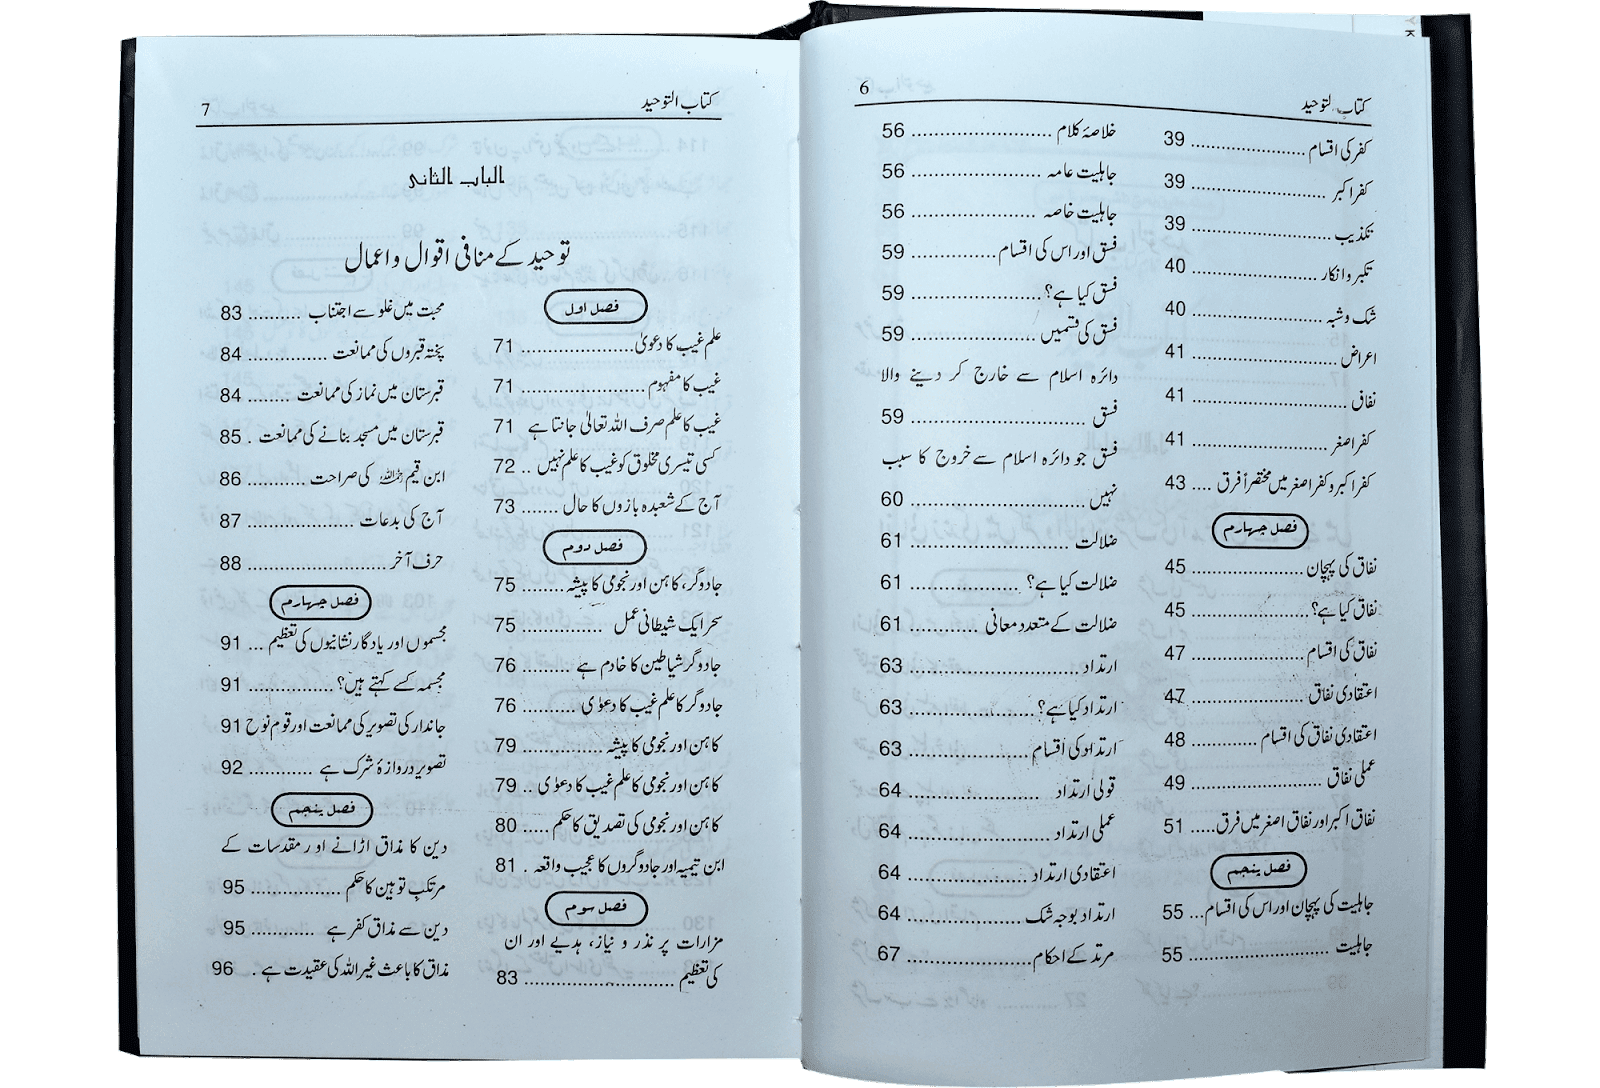 کتاب التوحید 6
کفر کی اقسام ...................... 39
کفر اکبر .......................... 39
تکذیب ............................ 39
تکبر و انکار ........................ 40
شک و شبہ ........................ 40
اعراض ............................ 41
نفاق .............................. 41
کفر اصغر .......................... 41
کفر اکبر و کفر اصغر میں مختصراً فرق .... 43
فصل چہارم
نفاق کی پہچان ...................... 45
نفاق کیا ہے؟ ...................... 45
نفاق کی اقسام ...................... 47
اعتقادی نفاق ...................... 47
اعتقادی نفاق کی اقسام ............. 48
عملی نفاق ........................ 49
نفاق اکبر اور نفاق اصغر میں فرق ..... 51
فصل پنجم
جاہلیت کی پہچان اور اس کی اقسام ... 55
جاہلیت .......................... 55
خلاصۂ کلام ........................ 56
جاہلیت عامہ ...................... 56
جاہلیت خاصہ ...................... 56
فسق اور اس کی اقسام ............... 59
فسق کیا ہے؟ ...................... 59
فسق کی قسمیں ...................... 59
دائرہ اسلام سے خارج کر دینے والا
فسق .............................. 59
فسق جو دائرہ اسلام سے خروج کا سبب
نہیں .............................. 60
ضلالت ............................ 61
ضلالت کیا ہے؟ .................... 61
ضلالت کے متعدد معانی ............ 61
ارتداد ............................ 63
ارتداد کیا ہے؟ .................... 63
ارتداد کی اقسام .................... 63
قولی ارتداد ........................ 64
عملی ارتداد ........................ 64
اعتقادی ارتداد .................... 64
ارتداد بوجہ شک .................... 64
مرتد کے احکام .................... 67
کتاب التوحید 7
الباب الثانی
توحید کے منافی اقوال و اعمال
فصل اول
علم غیب کا دعویٰ ...................... 71
غیب کا مفہوم ...................... 71
غیب کا علم صرف اللہ تعالیٰ جانتا ہے 71
کسی تیسری مخلوق کو غیب کا علم نہیں .. 72
آج کے شعبدہ بازوں کا حال ....... 73
فصل دوم
جادوگر، کاہن اور نجومی کا پیشہ ......... 75
سحر ایک شیطانی عمل ............... 75
جادوگر شیاطین کا خادم ہے .......... 76
جادوگر کا علم غیب کا دعوٰی .......... 76
کاہن اور نجومی کا پیشہ ............... 79
کاہن اور نجومی کا علم غیب کا دعوٰی .. 79
کاہن اور نجومی کی تصدیق کا حکم ..... 80
ابن تیمیہ اور جادوگروں کا عجیب واقعہ . 81
فصل سوم
مزارات پر نذر و نیاز، ہدیے اور ان
کی تعظیم ............................ 83
محبت میں غلو سے اجتناب .......... 83
پختہ قبروں کی ممانعت ............... 84
قبرستان میں نماز کی ممانعت ........ 84
قبرستان میں مسجد بنانے کی ممانعت . 85
ابن قیم رحمہ اللہ کی صراحت .......... 86
آج کی بدعات .................... 87
حرف آخر .......................... 88
فصل چہارم
مجسموں اور یادگار نشانیوں کی تعظیم ... 91
مجسمہ کسے کہتے ہیں؟ ............... 91
جاندار کی تصویر کی ممانعت اور قوم نوح 91
تصویر دروازۂ شرک ہے ............ 92
فصل پنجم
دین کا مذاق اڑانے اور مقدسات کے
مرتکبِ توہین کا حکم ............... 95
دین سے مذاق کفر ہے ............ 95
مذاق کا باعث غیر اللہ کی عقیدت ہے . 96